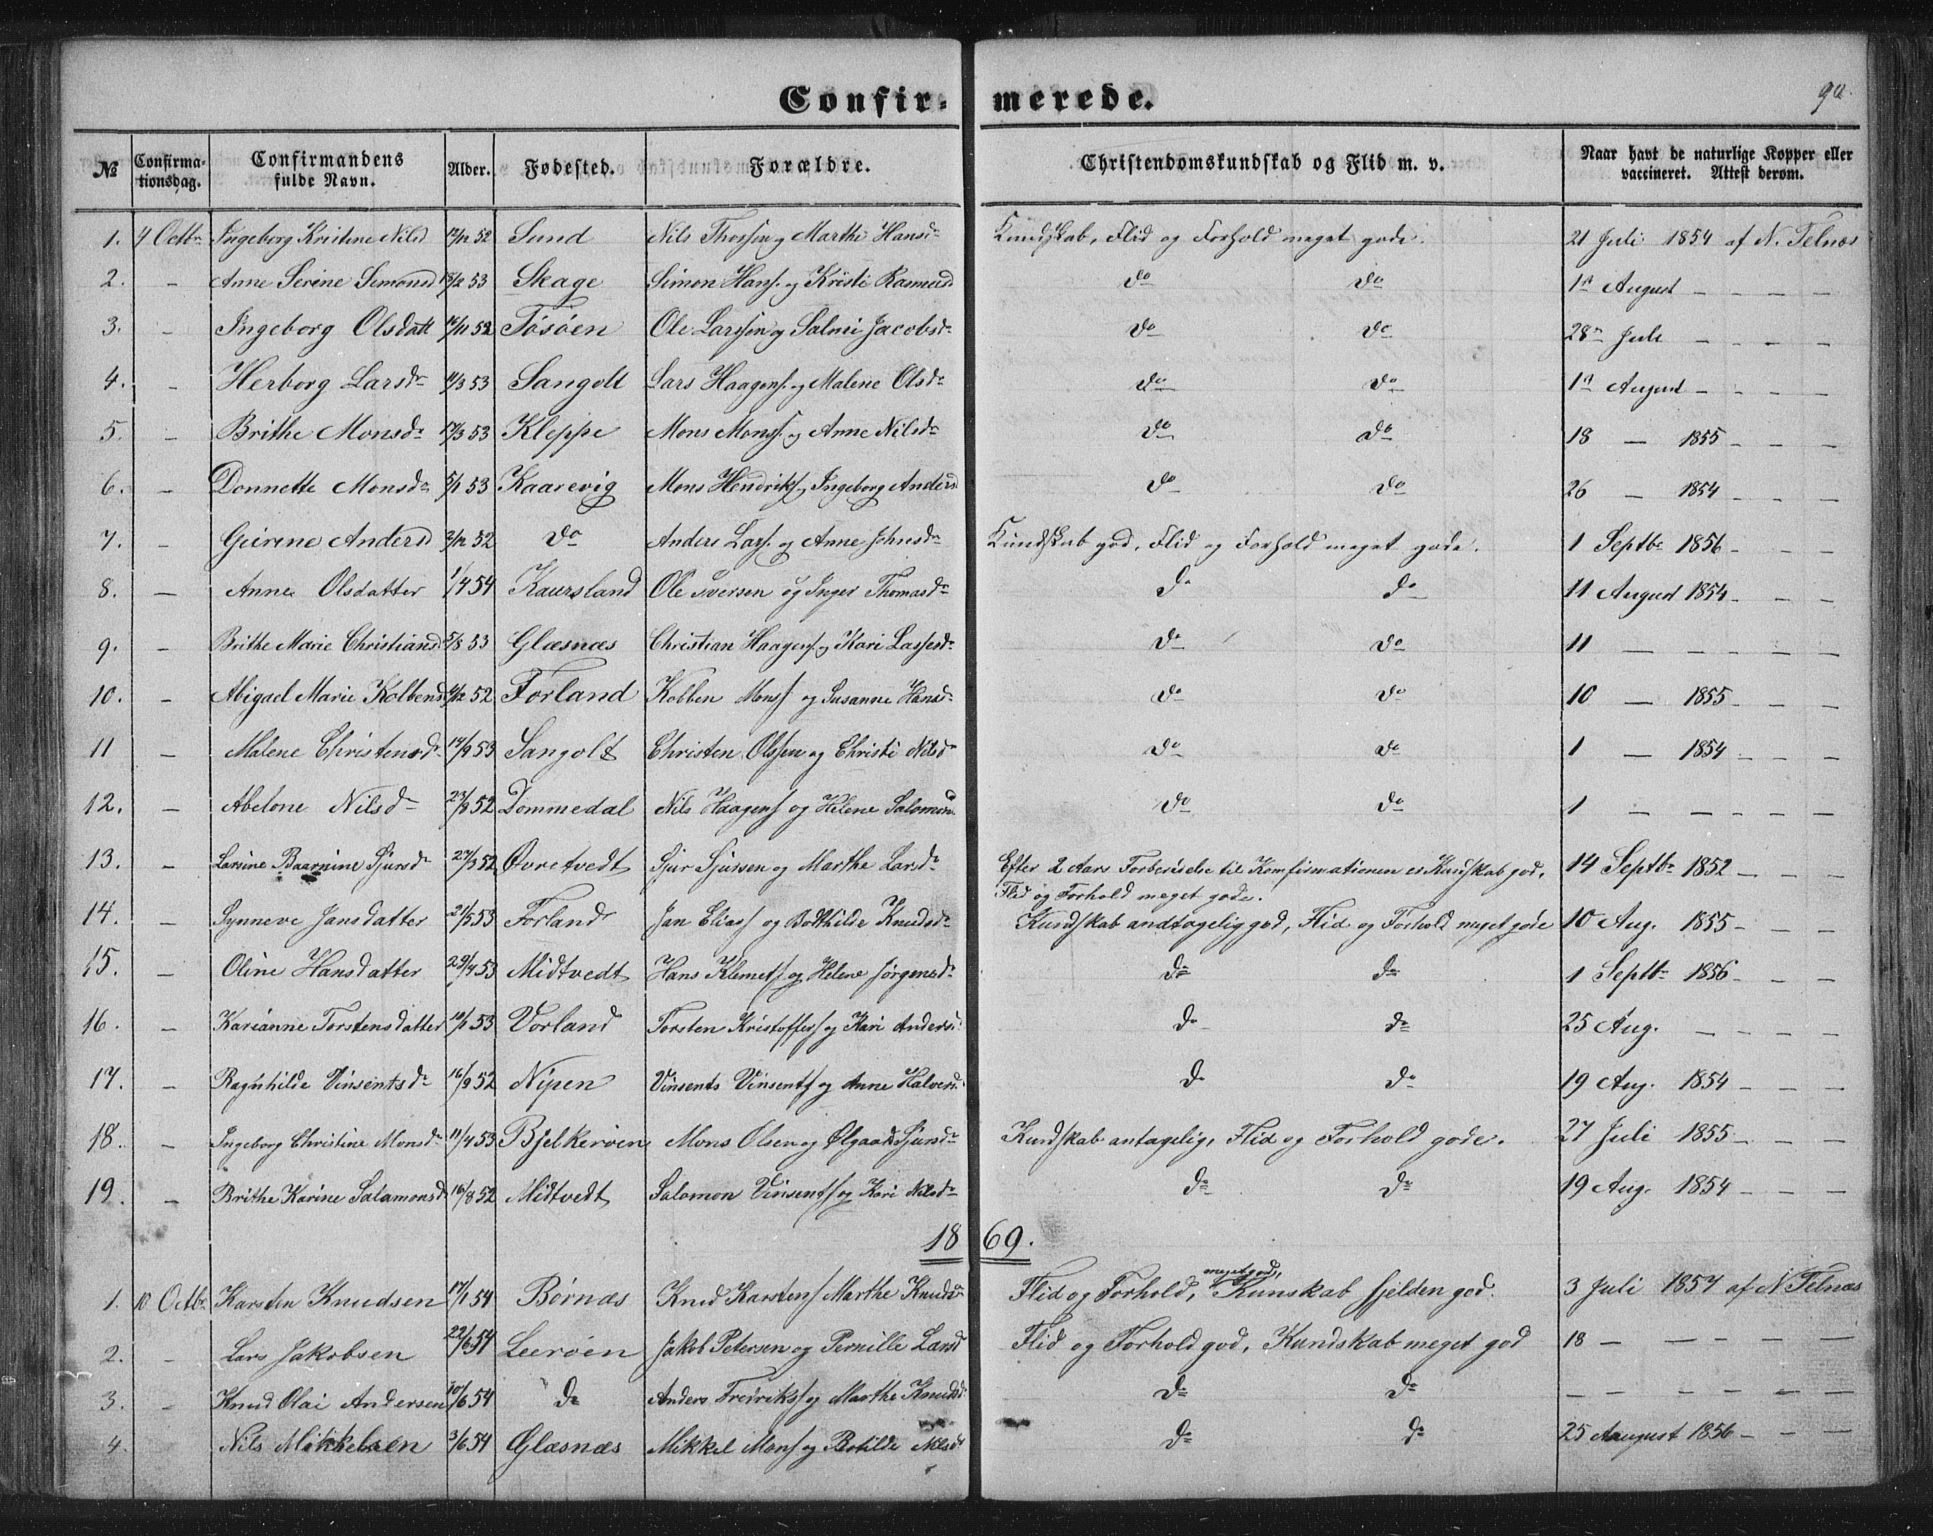 Confir- merede.
90.
№ Confirma-tionsdag. Confirmandens fulde Navn. Alder. Fødested. Forældre. Christendomskundskab og Flid m. v. Naar havt de naturlige Kopper eller vaccineret. Attest derom.
1. 4 Octbr Ingeborg Kristine Nilsd 12/12 52 Sund Nils Thorsen og Marthe Hansdr Kundskab, Flid og Forhold meget gode. 21 Juli 1854 af N. Telnæs
2. – Anne Serine Simonsd 18/2 53 Skage Simon Hans. og Kristi Rasmusd do do 1st August – – – –
3. – Ingeborg Olsdatt 16/11 52 Tösöen Ole Larssen og Salmi Jacobsdr do do 28n Juli – – – –
4. – Herborg Larsdr 11/3 53 Sangolt Lars Haagens. og Malene Olsdr do do 1st August – – – –
5. – Brithe Monsdr 17/3 53 Kleppe Mons Mons. og Anne Nilsdr do do 18 – 1855 – – –
6. – Donnette Monsdr 5/1 53 Kaarevig Mons Hendriks. og Ingeborg Andersd do do 26 – 1854 – – –
7. – Geirine Andersd 2/12 52 do Anders Lars. og Anne Johnsdr Kundskab god, Flid og Forhold meget gode. 1 Septbr 1856 – – –
8. – Anne Olsdatter 1/4 54 Kaursland Ole Iversen og Inger Thomasdr do do 11 August 1854 – – –
9. – Brithe Marie Christiansd 5/8 53 Glæsnæs Christian Haagens. og Kari Lassesdr do do 11 – – – – –
10. – Abigael Marie Kolbensd 9/12 52 Forland Kolben Mons. og Susanne Hansdr do do 10 – 1855 – – –
11 – Malene Christensdr 14/9 53 Sangolt Christen Olssen og Christi Nilsdr do do 1 – 1854 – – –
12. – Abelone Nilsdr 23/8 52 Dommedal Nils Haagens. og Helene Salomonsd do do 1 – – – – –
13. – Larsine Baarnine Sjursdr 27/3 52 Øvretvedt Sjur Sjursen og Marthe Larsdr Efter 2 Aars Forberedelse til Konfirmationen er Kundskab god,
Flid og Forhold meget gode. 14 Septbr 1852 – – –
14. – Synneve Jansdatter 21/5 53 Forland Jan Elias. og Bothilde Knudsdr Kundskab andtagelig god, Flid og Forhold meget gode 10 Aug. 1855 – – –
15. – Oline Hansdatter 29/4 53 Midtvedt Hans Klemets. og Helene Jörgensdr do do 1 Septbr 1856 – – –
16. – Karianne Torstensdatter 10/1 53 Vorland Torsten Kristoffers. og Kari Andersd. do do 25 Aug. – – – –
17. – Ragnhilde Vinsentsdr 16/9 52 Nipen Vinsents Vinsents. og Anne Halvorsd. do do 19 Aug. 1854 – – –
18. – Ingeborg Christine Monsdr 11/4 53 Bjelkeröen Mons Olsen og Ølgaard Sjursdr Kundskab antagelig, Flid og Forhold gode. 27 Juli 1855 – – –
19. – Brithe Karine Salamonsd 16/8 52 Midtvedt Salomon Vinsents. og Kari Nilsdr do do 19 Aug. 1854 – – –
1869.
1. 10 Octbr Karsten Knudsen 17/1 54 Börnæs Knud Karstens. Marthe Knudsdr Flid og Forhold, meget god, Kunskab sjelden god. 3 Juli 1854 af N Telnæs
2. – Lars Jakobsen 22/6 54 Leeröen Jakob Petersen og Pernille Larsd Flid og Forhold god, Kundskab meget god 18 – – – – –
3. – Knud Olai Andersen 10/6 54 do Anders Fredriks. og Marthe Knudsd do do – – – – – –
4. – Nils Mikkelsen 3/6 54 Glæsnæs Mikkel Mons. og Botilde Nilsd do do 25 August 1856 – – –